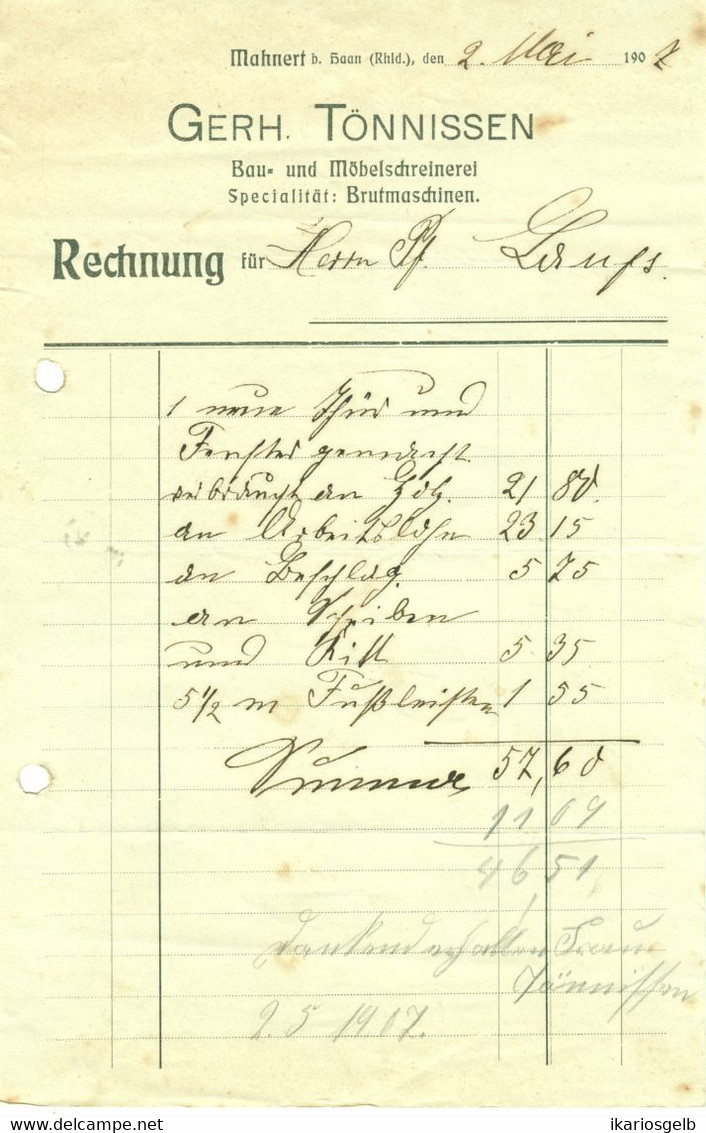 Mahnert b. Haan (Rhld.), den 2. Mai 1907
GERH. TÖNNISSEN
Bau- und Möbelschreinerei
Specialität: Brutmaschinen.
Rechnung für Herrn Pf. Laufs.
1 neue Thür und
Fenster gemacht.
verbraucht an Holz. 21 80.
an Arbeitslohn 23 15
an Beschlag. 5 75
an Scheiben
und Kitt 5 35
5 1/2 m Fußleisten 1 55
Summa 57,60
11 09
46,51
Dankend erhalten Frau
Tönnissen
2.5 1907.
ikariosgelb